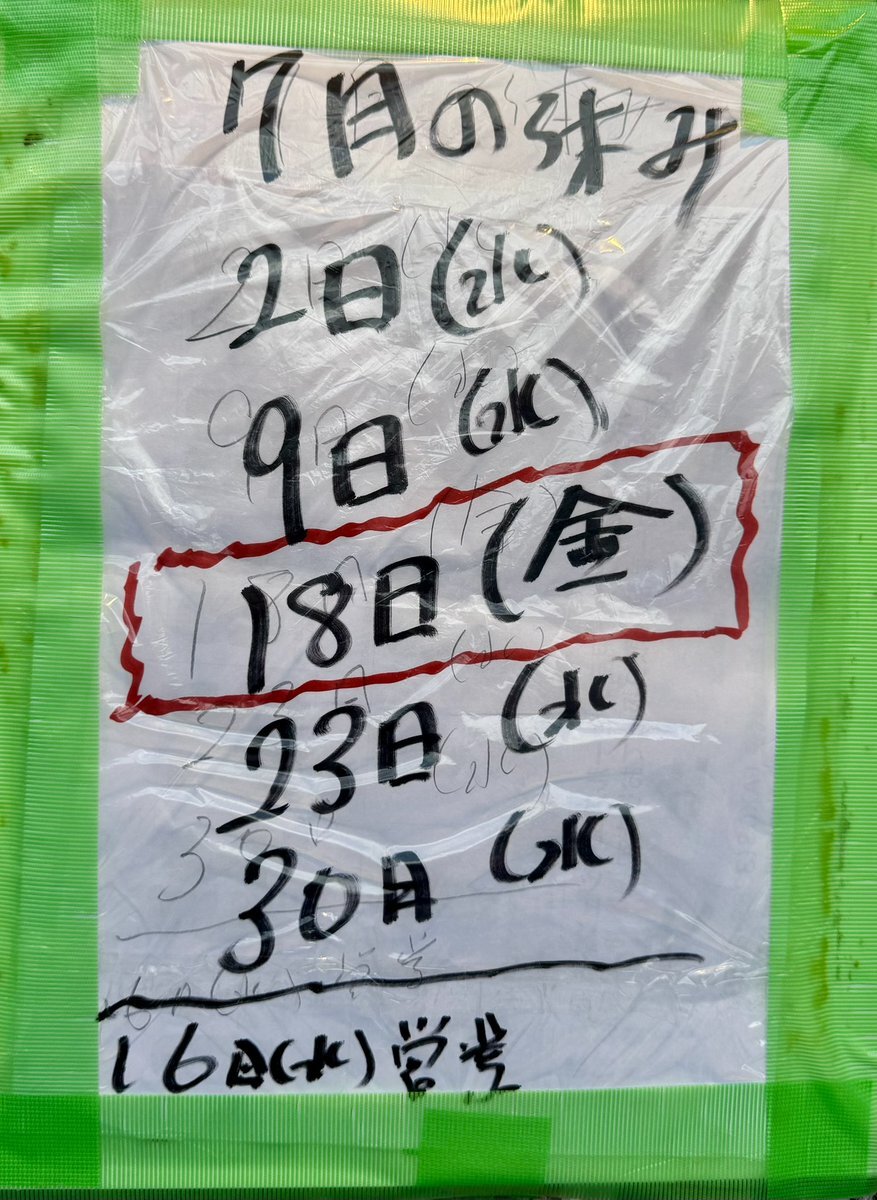 7月の休み
2日(水)
9日(水)
18日(金)
23日(水)
30日(水)
16日(水)営業